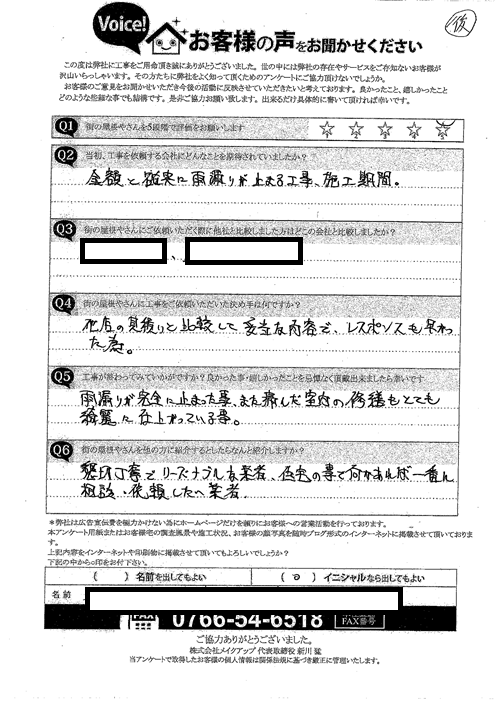 後
Voice!
お客様の声をお聞かせください
この度は弊社に工事をご用命頂き誠にありがとうございました。世の中には弊社の存在やサービスをご存知ないお客様が
沢山いらっしゃいます。その方たちに弊社をよく知って頂くためのアンケートにご協力頂けないでしょうか。
お客様のご意見をお聞かせいただき今後の活動に反映させていただきたいと考えております。良かったこと、嬉しかったこと
どのような些細な事でも結構です。是非ご協力お願い致します。出来るだけ具体的に書いて頂ければ幸いです。
Q1 街の屋根やさんを5段階で評価をお願いします
1 2 3 4 5
Q2 当初、工事を依頼する会社にどんなことを期待されていましたか?
金額と確実に雨漏りが止まる工事、施工期間。
Q3 街の屋根やさんにご依頼いただく際に他社と比較しました方はどこの会社と比較しましたか?
、
Q4 街の屋根やさんに工事をご依頼いただいた決め手は何ですか?
他店の見積りと比較して妥当な内容で、レスポンスも早かっ
た為。
Q5 工事が終わってみていかがですか?良かった事・嬉しかったことを忌憚なく頂戴出来ましたら幸いです
雨漏りが完全に止まった事、また痛んだ室内の修繕もとても
綺麗に仕上がっている事。
Q6 街の屋根やさんを他の方に紹介するとしたらなんと紹介しますか?
懇切丁寧でリーズナブルな業者、住宅の事で何かあれば一番に
相談・依頼したい業者。
*弊社は広告宣伝費を極力かけない為にホームページだけを頼りにお客様への営業活動を行っております。
本アンケート用紙またはお客様宅の調査風景や施工状況、お客様の顔写真を随時ブログ形式のインターネットに掲載させて頂いておりま
す。
上記内容をインターネットや印刷物に掲載させて頂いてもよろしいでしょうか?
下記の中から○印をお付下さい。
( ) 名前を出してもよい ( ○ ) イニシャルなら出してもよい
名前
FAX 0766-54-6518 FAX番号
ご協力ありがとうございました。
株式会社メイクアップ 代表取締役 新川 猛
当アンケートで取得したお客様の個人情報は関係法規に基づき厳正に管理いたします。